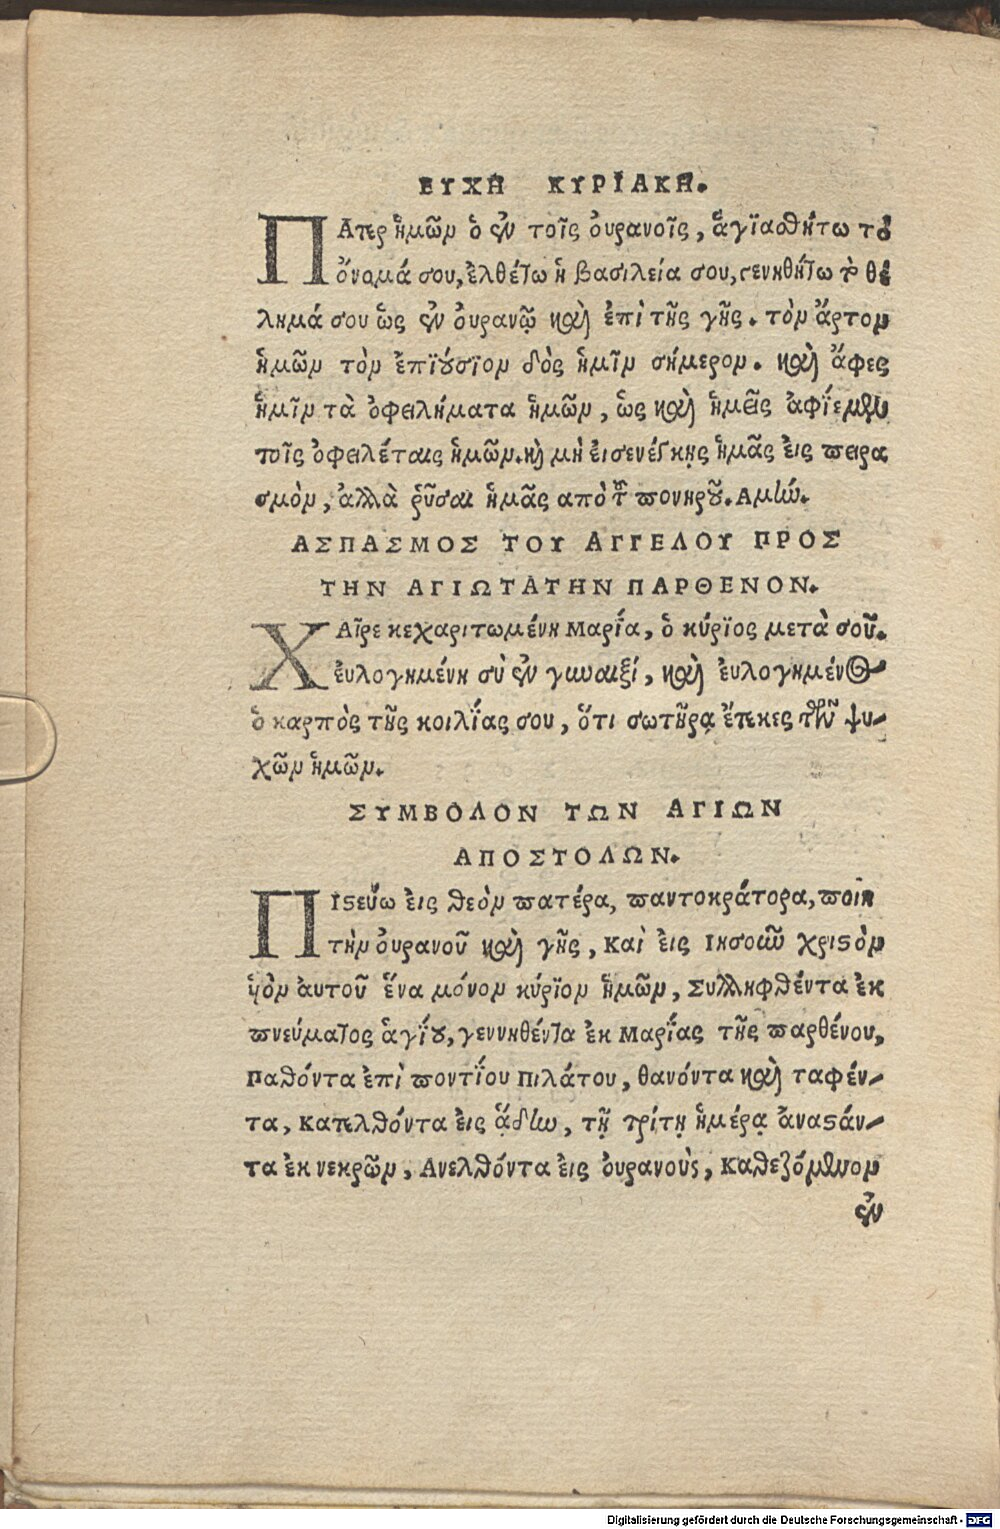 ΕΥΧΗ ΚΥΡΙΑΚΗ.
ΠΑτερ ἡμῶν ὁ ἐν τοῖς ὀυρανοῖς, ἁγϊασθήτω τὸ
ὄνομά σου, ἐλθέτω ἡ βασιλεία σου, γενηθήτω τὸ θέ
λημά σου ὡς ἐν ὀυρανῷ καὶ ἐπὶ τῆς γῆς. τὸν ἄρτον
ἡμῶν τὸν ἐπϊούσϊον δὸς ἡμῖν σήμερον. καὶ ἄφες
ἡμῖν τὰ ὀφειλήματα ἡμῶν, ὡς καὶ ἡμεῖς ἀφΐεμεν
τοῖς ὀφειλέταις ἡμῶν. καὶ μὴ ἐισενέγκῃς ἡμᾶς ἐις πειρα
σμὸν, ἀλλὰ ῥῦσαι ἡμᾶς απὸ τοῦ πονηροῦ. Αμήν.
ΑΣΠΑΣΜΟΣ ΤΟΥ ΑΓΓΕΛΟΥ ΠΡΟΣ
ΤΗΝ ΑΓΙΩΤΑΤΗΝ ΠΑΡΘΕΝΟΝ.
ΧΑῖρε κεχαριτωμένη Μαρΐα, ὁ κύρϊος μετὰ σοῦ.
ἐυλογημένη σὺ ἐν γυναιξί, καὶ ἐυλογημένος
ὁ καρπὸς τῆς κοιλΐας σου, ὅτι σωτῆρᾳ ἔτεκες τῶν ψυ-
χῶν ἡμῶν.
ΣΥΜΒΟΛΟΝ ΤΩΝ ΑΓΙΩΝ
ΑΠΟΣΤΟΛΩΝ.
ΠΙστεύω ἐις θεὸν πατέρα, παντοκράτορα, ποιη
τὴν ὀυρανοῦ καὶ γῆς, Καὶ ἐις Ιησοῦν χριστὸν
ὑὸν ἀυτοῦ ἕνα μόνον κύρϊον ἡμῶν, Συλληφθέντα ἐκ
πνεύματος ἁγΐου, γεννηθέντα ἐκ Μαρΐας τῆς παρθένου,
Παθόντα ἐπὶ ποντΐου Πιλάτου, θανόντα καὶ ταφέν-
τα, Κατελθόντα ἐις ᾅδην, τῇ τρίτῃ ἡμέρᾳ ἀναστάν-
τα ἐκ νεκρῶν, Ανελθόντα ἐις ὀυρανοὺς, Καθεζόμενον
ἐν
Digitalisierung gefördert durch die Deutsche Forschungsgemeinschaft - DFG